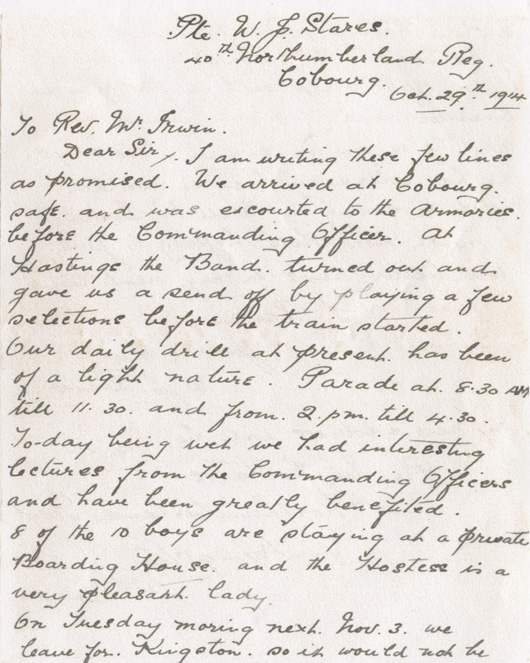 Pte. W. J. Stares.
40th Northumberland Reg.
Cobourg.
Oct. 29th 1914
To Rev. Mr Irwin.
Dear Sir/. I am writing these few lines
as promised. We arrived at Cobourg.
safe. and was escourted to the Armories.
before the Commanding Officer. At
Hastings the Band. turned out and
gave us a send off by playing a few
selections before the train started.
Our daily drill at present. has been
of a light nature. Parade at. 8.30 AM
till 11.30. and from. 2.pm. till 4.30.
To-day being wet we had interesting
lectures from the Commanding Officers
and have been greatly benefited.
8 of the 10 boys are staying at a private
Boarding House. and the Hostess is a
very pleasant lady.
On Tuesday moring next. Nov. 3. we
leave for. Kingston. so it would not be